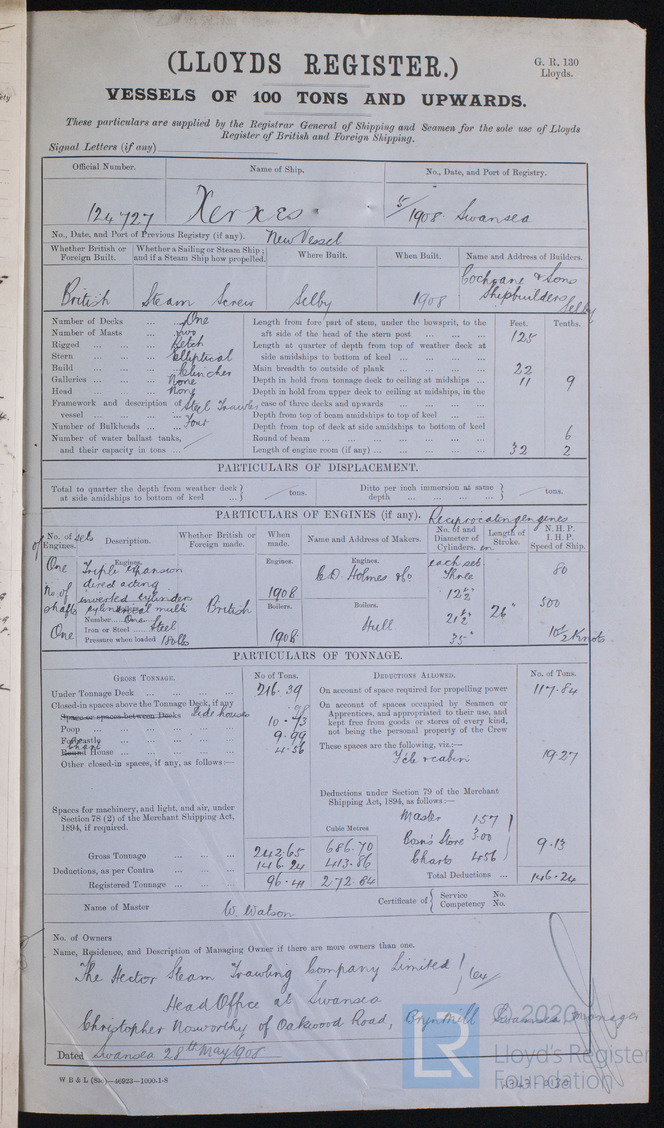 (LLOYDS REGISTER.)
G. R. 130
Lloyds.
VESSELS OF 100 TONS AND UPWARDS.
These particulars are supplied by the Registrar General of Shipping and Seamen for the sole use of Lloyds
Register of British and Foreign Shipping.
Signal Letters (if any)
Official Number. Name of Ship. No., Date, and Port of Registry.
124727 Xerxes 5/1908 Swansea
No., Date, and Port of Previous Registry (if any). New Vessel
Whether British or Foreign Built. Whether a Sailing or Steam Ship; and if a Steam Ship how propelled. Where Built. When Built. Name and Address of Builders.
British Steam Screw Selby 1908 Cochrane & Sons Shipbuilders Selby
Number of Decks One
Number of Masts two
Rigged Ketch
Stern elliptical
Build Clencher
Galleries None
Head None
Framework and description of vessel Steel Trawler
Number of Bulkheads Four
Number of water ballast tanks,
and their capacity in tons
Feet. Tenths.
Length from fore part of stem, under the bowsprit, to the
aft side of the head of the stern post 125
Length at quarter of depth from top of weather deck at
side amidships to bottom of keel
Main breadth to outside of plank 22
Depth in hold from tonnage deck to ceiling at midships 11 9
Depth in hold from upper deck to ceiling at midships, in the
case of three decks and upwards
Depth from top of beam amidships to top of keel
Depth from top of deck at side amidships to bottom of keel
Round of beam 6
Length of engine room (if any) 32 2
PARTICULARS OF DISPLACEMENT.
Total to quarter the depth from weather deck at side amidships to bottom of keel tons.
Ditto per inch immersion at same depth tons.
PARTICULARS OF ENGINES (if any). Reciprocating engines
No. of sets of Engines. Description. Whether British or Foreign made. When made. Name and Address of Makers. No. of and Diameter of Cylinders. in each set Length of Stroke. N.H.P. I.H.P. Speed of Ship.
One
No. of shafts
One
Engines.
Triple expansion
direct acting
inverted cylinders
Boilers
cylindrical multi
Number One
Iron or Steel Steel
Pressure when loaded 180lbs
British
Engines.
1908
Boilers.
1908
Engines.
C.D. Holmes & Co
Boilers.
Hull
Three
12½"
21½"
35"
26"
80
500
10½ Knots
PARTICULARS OF TONNAGE.
GROSS TONNAGE. No of Tons. DEDUCTIONS ALLOWED. No. of Tons.
Under Tonnage Deck 216.39
Closed-in spaces above the Tonnage Deck, if any
Space or spaces between Decks Side houses .98
Poop 10.73
Forecastle 9.99
Round Chart House 4.56
Other closed-in spaces, if any, as follows:—
Spaces for machinery, and light, and air, under
Section 78 (2) of the Merchant Shipping Act,
1894, if required.
On account of space required for propelling power 117.84
On account of spaces occupied by Seamen or
Apprentices, and appropriated to their use, and
kept free from goods or stores of every kind,
not being the personal property of the Crew
These spaces are the following, viz.:—
F'cle & cabin 19.27
Deductions under Section 79 of the Merchant
Shipping Act, 1894, as follows:—
Master 1.57
Bosn's Store 3.00
Charts 4.56
9.13
Cubic Metres
Gross Tonnage 242.65 686.70
Deductions, as per Contra 146.24 413.86
Registered Tonnage 96.41 272.84
Total Deductions 146.24
Name of Master W. Watson
Certificate of Service No.
Competency No.
No. of Owners
Name, Residence, and Description of Managing Owner if there are more owners than one.
The Hector Steam Trawling Company Limited 64
Head Office at Swansea
Christopher Nosworthy of Oakwood Road, Brynmill Swansea, Manager
Dated Swansea 28th May 1908
W B & L (83c)—46923—1000-1-8
LR
© 2020
Lloyd's Register
Foundation